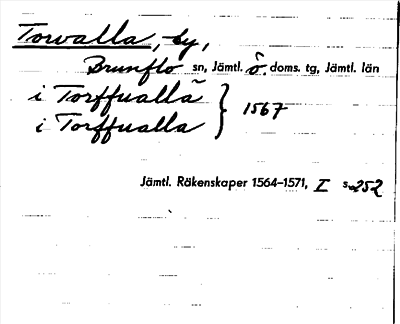 Torvalla, by,
Brunflo sn, Jämtl. ö. doms. tg, Jämtl. län
i Torffuallã } 1567
i Torffualla
Jämtl. Räkenskaper 1564-1571, I s. 252